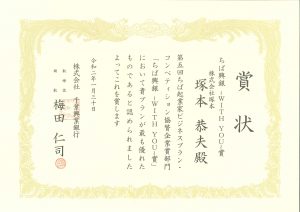 賞状
ちば興銀 “WITH YOU”賞
株式会社塚本
塚本 恭夫殿
第五回ちば起業家ビジネスプラン・
コンペティション協賛企業賞部門
「ちば興銀“WITH YOU”賞」
において貴プランが最も優れた
ものであると認められました
よってこれを賞します
令和二年一月三十日
株式会社 千葉興業銀行
梅田 仁司